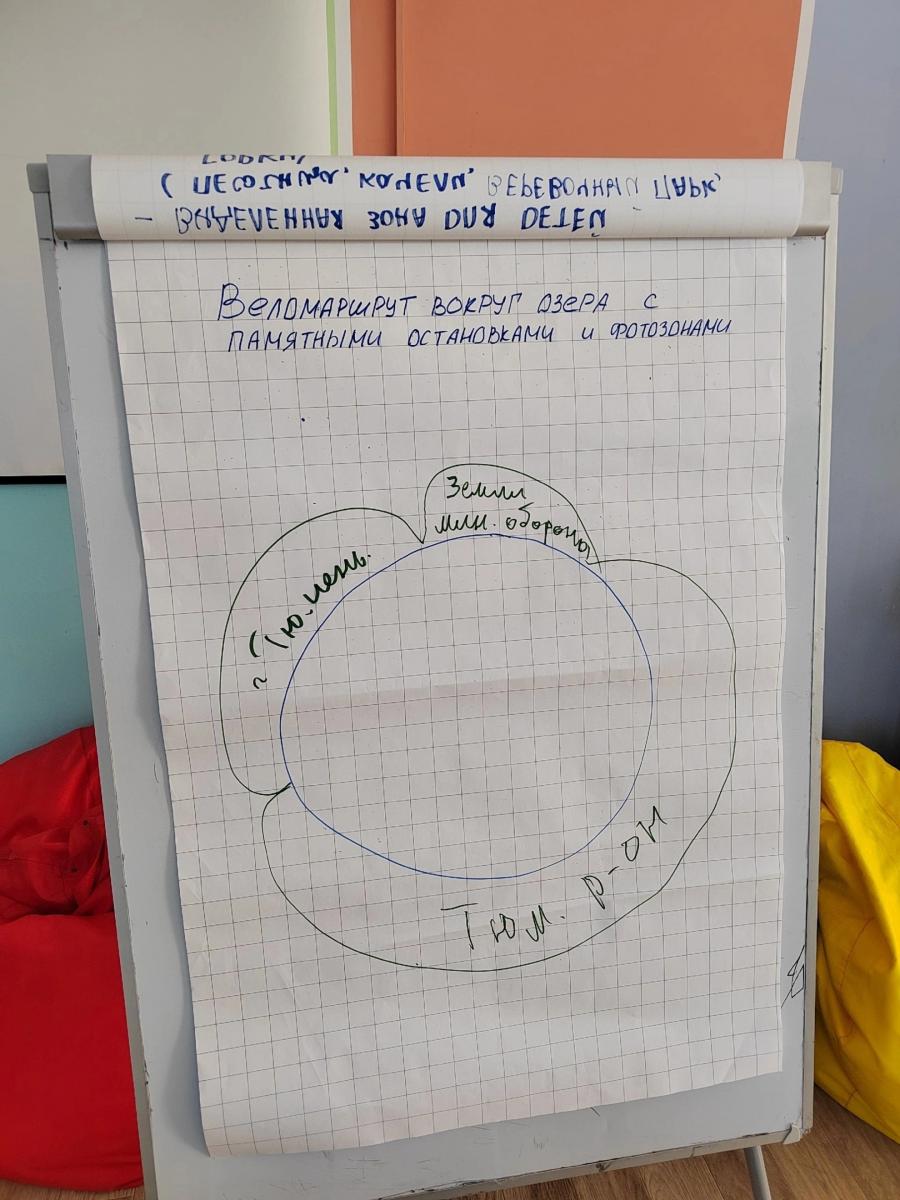 - ВЫДЕЛЕННАЯ ЗОНА ДЛЯ ДЕТЕЙ -
( ПЕСОЧНИЦЫ, КАЧЕЛИ, ВЕРЕВОЧНЫЙ ПАРК,
ВЕЛОМАРШРУТ ВОКРУГ ОЗЕРА С
ПАМЯТНЫМИ ОСТАНОВКАМИ И ФОТОЗОНАМИ
Земли
мин. обороны
~ Тюмень.
Тюм. р-он